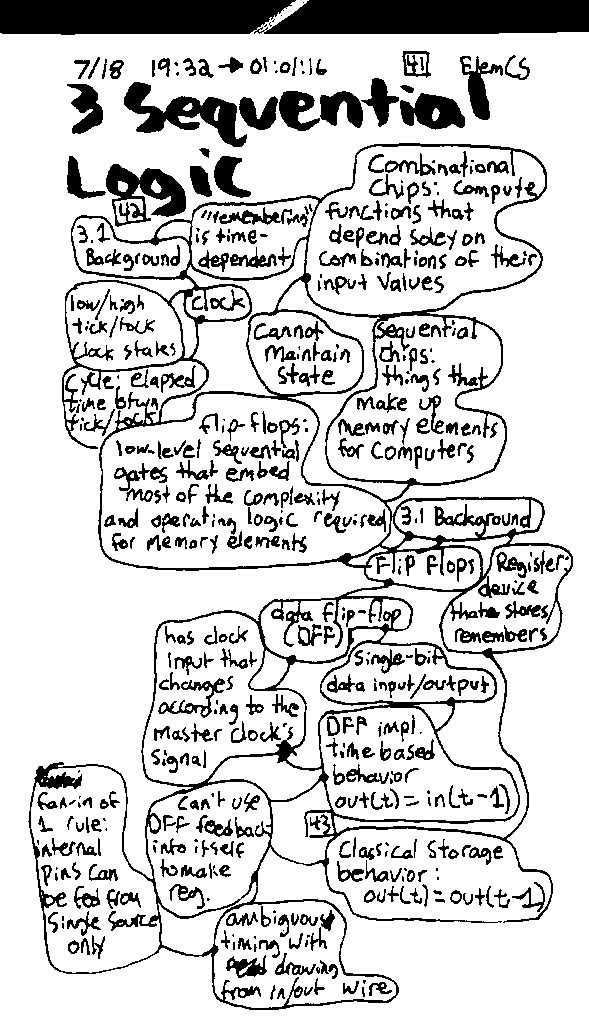 7/18 19:32 → 01:01:16 41 ElemCS
3 Sequential
Logic
42
3.1
Background
"remembering"
is time-
dependent
Combinational
Chips: compute
functions that
depend soley on
combinations of their
input values
Clock
low/high
tick/tock
clock states
Cycle: elapsed
time btwn
tick/tocks
Cannot
Maintain
State
Sequential
Chips:
things that
make up
memory elements
for Computers
flip-flops:
low-level sequential
gates that embed
most of the complexity
and operating logic required
for memory elements
3.1 Background
Flip Flops
Register:
device
that stores/
remembers
data flip-flop
(DFF)
has clock
input that
changes
according to the
Master Clock's
Signal
Single-bit
data input/output
DFF impl.
time based
behavior
out(t) = in(t-1)
43
Can't use
DFF feedback
into itself
to make
reg.
Classical Storage
behavior:
out(t) = out(t-1)
fan-in of
1 rule:
internal
pins can
be fed from
Single Source
only
ambiguous
timing with
drawing
from in/out wire